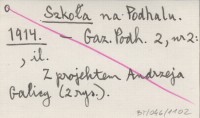 Szkoła na Podhalu.
1914. - Gaz. Podh. 2, nr 2:
, il.
Z projektem Andrzeja
Galicy (2 rys.).
BI/046/1102